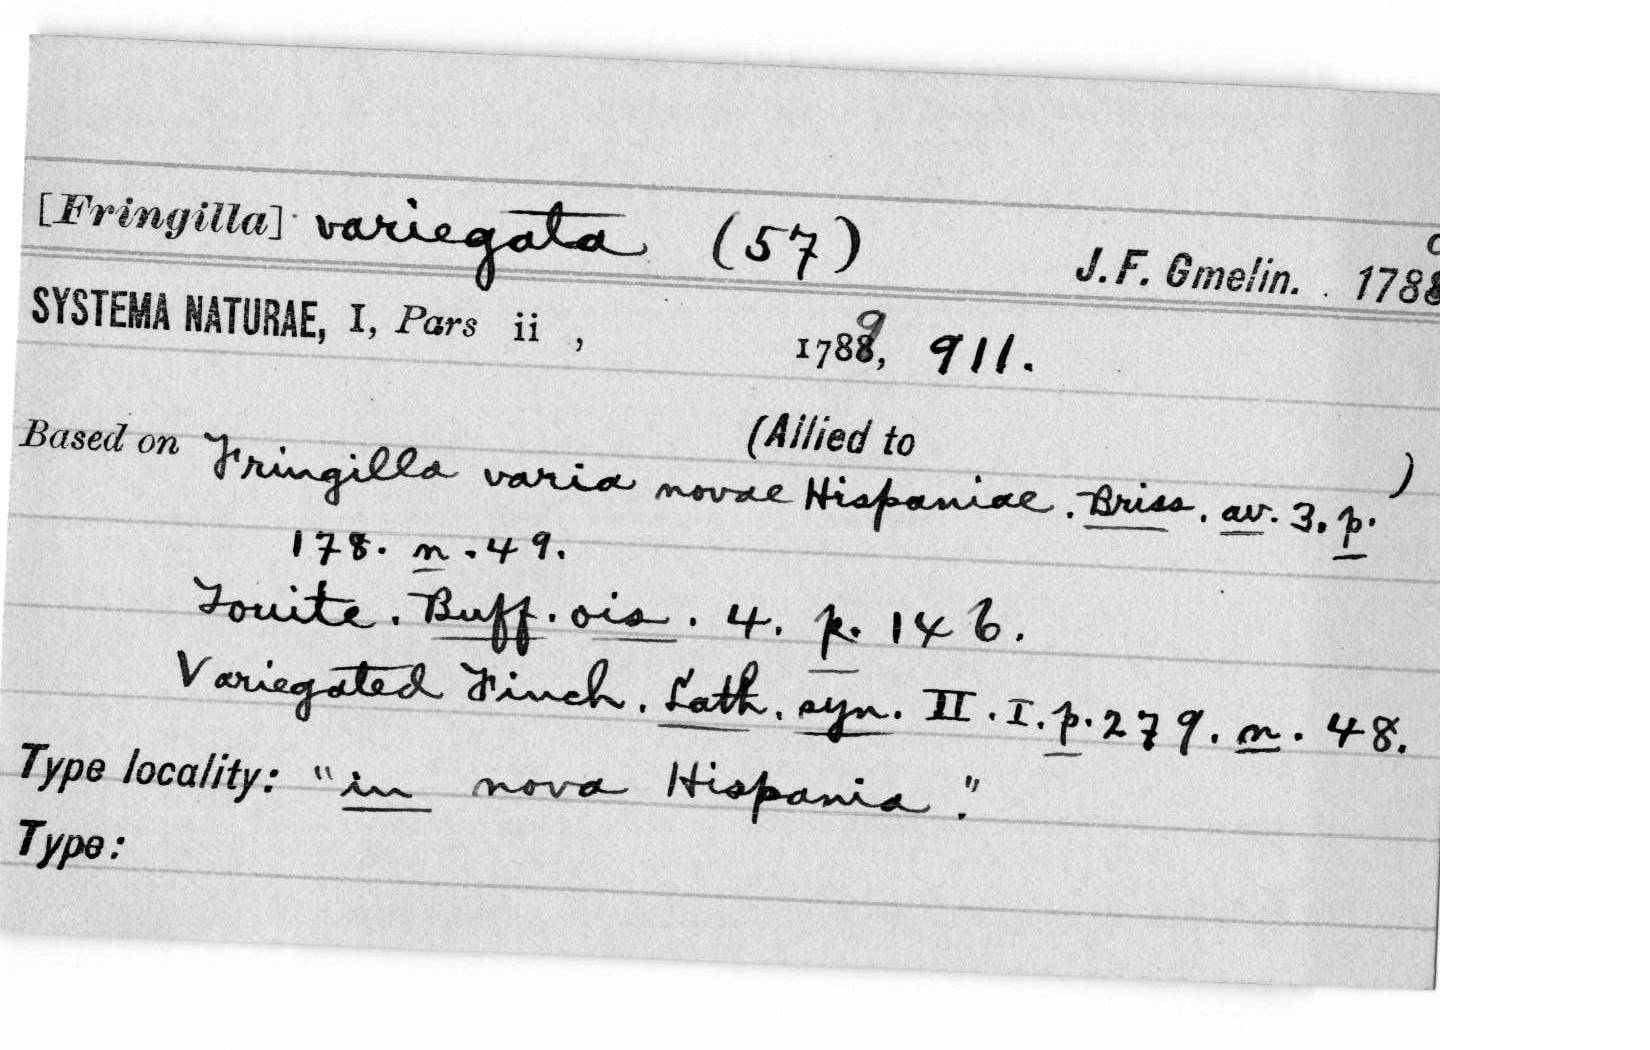 [Fringilla] variegata (57) J. F. Gmelin. 1788
SYSTEMA NATURAE, I, Pars ii, 1789, 911.
Based on (Allied to )
Fringilla varia novae Hispaniae. Briss. av. 3. p.
178. n. 49.
Touite. Buff. ois. 4. p. 146.
Variegated Finch. Lath. syn. II. I. p. 279. n. 48.
Type locality: "in nova Hispania."
Type: